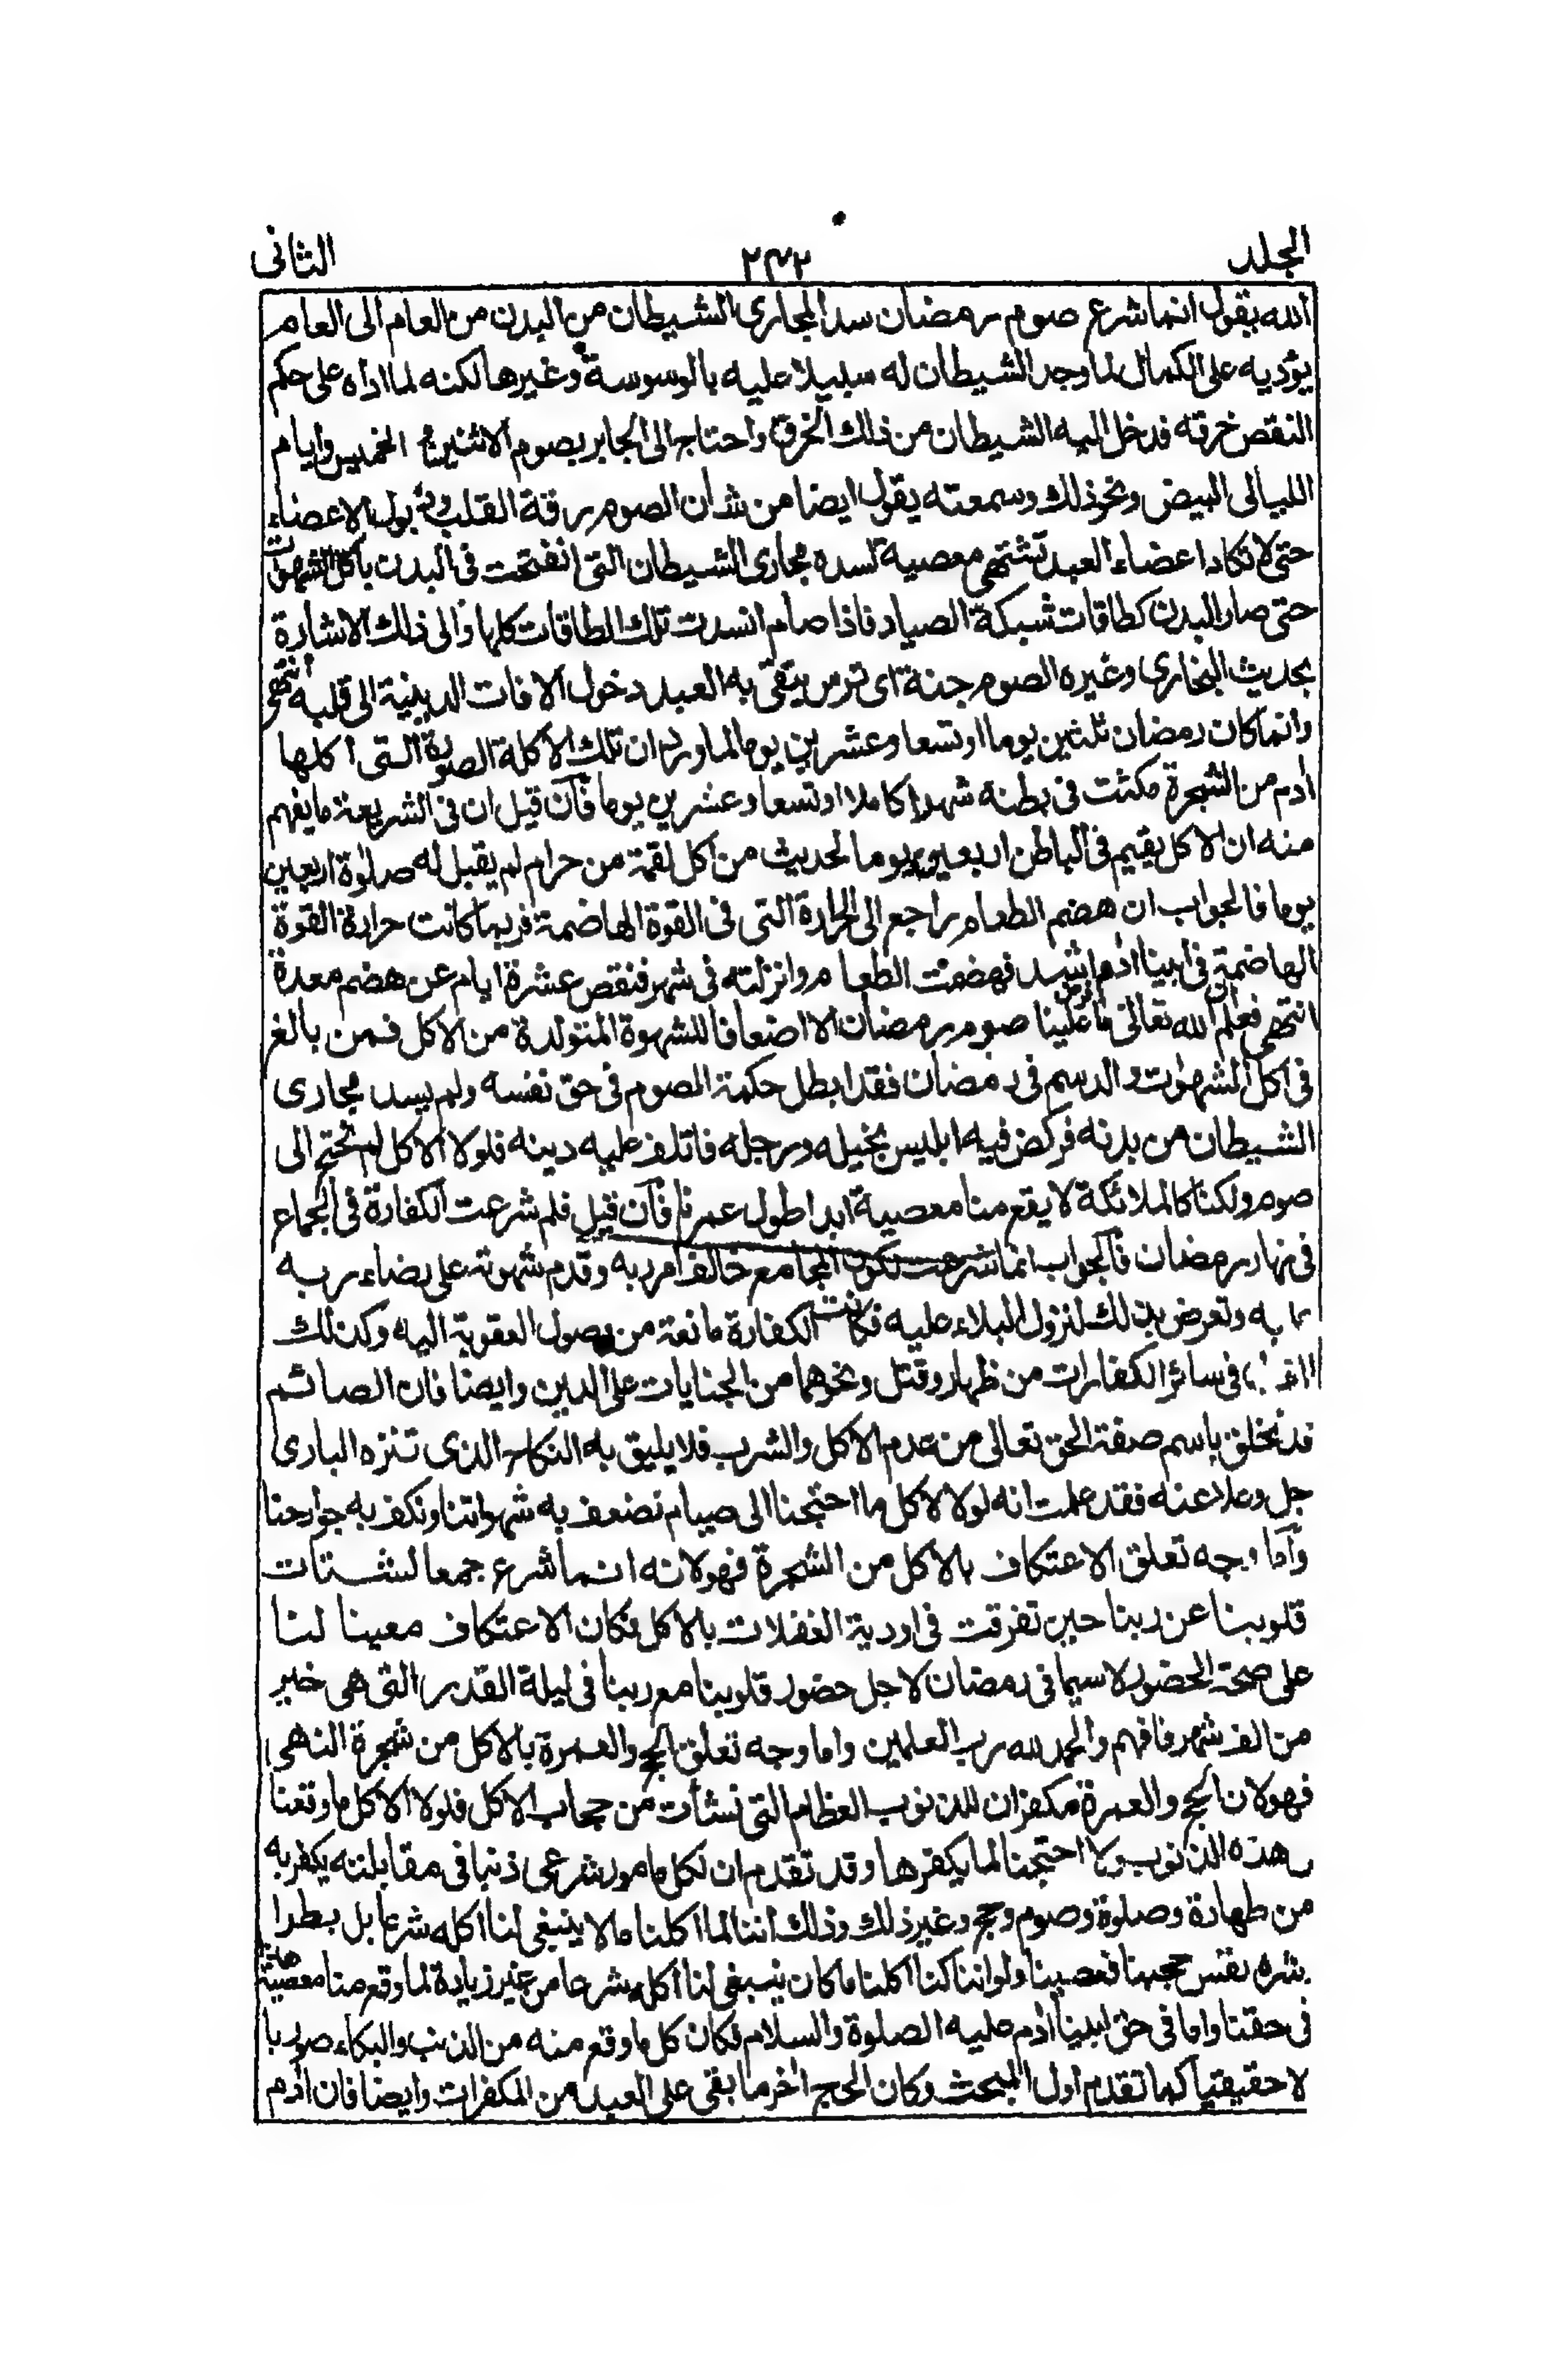 الجلد ٢٣٢ الثانى
الله يقول انما شرع صوم رمضان سدا لمجارى الشيطان من البدن من العام الى العام
يؤديه على الكمال لما وجد الشيطان له سبيلا عليه بالوسوسة وغيرها لكنه لما اداه على حكم
النقص خرقه فدخل اليه الشيطان من ذلك الخرق واحتاج الى الجابر بصوم الاثنين الخميس وايام
الليالى البيض ونحو ذلك وسمعته يقول ايضا من شان الصوم رقة القلب وذبول الاعضاء
حتى لا تكاد اعضاء العبد تشتهى معصية لسده مجارى الشيطان التى انفتحت فى البدن باكل الشهوات
حتى صار البدن كطاقات شبكة الصياد فاذا صام انسدت تلك الطاقات كلها والى ذلك الاشارة
بحديث البخارى وغيره الصوم جنة اى ترس يتقى به العبد دخول الافات الدينية الى قلبه انتهى
وانما كان رمضان ثلثين يوما او تسعا وعشرين يوما لما ورد ان تلك الاكلة الصورية التى اكلها
ادم من الشجرة مكثت فى بطنه شهرا كاملا او تسعا وعشرين يوما فان قيل ان فى الشريعة ما يفهم
منه ان الاكل يقيم فى الباطن اربعين يوما لحديث من اكل لقمة من حرام لم يقبل له صلوة اربعين
يوما فالجواب ان هضم الطعام راجع الى الحرارة التى فى القوة الهاضمة فربما كانت حرارة القوة
الهاضمة فى ابينا ادم اشد فهضمت الطعام وانزلته فى شهر فنقص عشرة ايام عن هضم معدة
انتهى فعلم ان الله تعالى ما فرض علينا صوم رمضان الا اضعافا للشهوة المتولدة من الاكل فمن بالغ
فى اكل الشهوات والدسم فى رمضان فقد ابطل حكمة الصوم فى حق نفسه ولم يسد مجارى
الشيطان من بدنه فركض فيه ابليس بخيله ورجله فاتلف عليه دينه فلولا الاكل لم نحتج الى
صوم ولكنا كالملائكة لا يقع منا معصية ابدا طول عمرنا فان قيل فلم شرعت الكفارة فى الجماع
فى نهار رمضان فالجواب انما شرعت لكون المجامع خالف امر ربه وقدم شهوته على رضاء ربه
به وتعرض بذلك لنزول البلاء عليه فكانت الكفارة مانعة من وصول العقوبة اليه وكذلك
فى سائر الكفارات من ظهار وقتل ونحوهما من الجنايات على الدين وايضا فان الصائم
قد تخلق باسم صفة الحق تعالى من عدم الاكل والشرب فلا يليق به النكاح الذى تنزه البارى
جل وعلا عنه فقد علمت انه لولا الاكل ما احتجنا الى صيام نضعف به شهواتنا ونكف به جوارحنا
واما وجه تعلق الاعتكاف بالاكل من الشجرة فهو لانه انما شرع جمعا لشتات
قلوبنا عن ربنا حين تفرقت فى اودية الغفلات بالاكل فكان الاعتكاف معينا لنا
على صحة الحضور لا سيما فى رمضان لاجل حضور قلوبنا مع ربنا فى ليلة القدر التى هى خير
من الف شهر فافهم والحمد لله رب العلمين واما وجه تعلق الحج والعمرة بالاكل من شجرة النهى
فهو لان الحج والعمرة مكفران للذنوب العظام التى نشأت من حجاب الاكل فلولا الاكل ما وقعنا
هذه الذنوب ولا احتجنا لما يكفرها وقد تقدم ان لكل مامور شرعى ذنبا فى مقابلته يكفر به
من طهارة وصلوة وصوم وحج وغير ذلك وذلك اننا لما اكلنا ما لا ينبغى لنا اكله شرعا بل بطرا
بشره نفس حجبنا فعصينا ولو اننا كنا اكلنا ما كان ينبغى لنا اكله شرعا من غير زيادة لما وقع منا معصية هذا
فى حقنا واما فى حق ابينا ادم عليه الصلوة والسلام فكان كل ما وقع منه من الذنب والبكاء صوريا
لا حقيقيا كما تقدم اول المبحث وكان الحج اخر ما بقى على العبد من المكفرات وايضا فان ادم